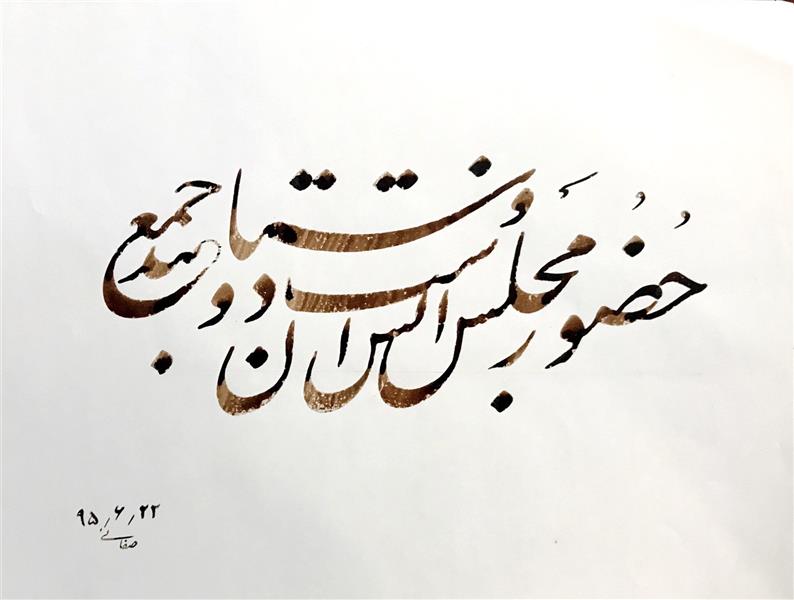 حُضُور مجلس انس است و دوستان جمعند
۹۵/۶/۲۲
صفائی